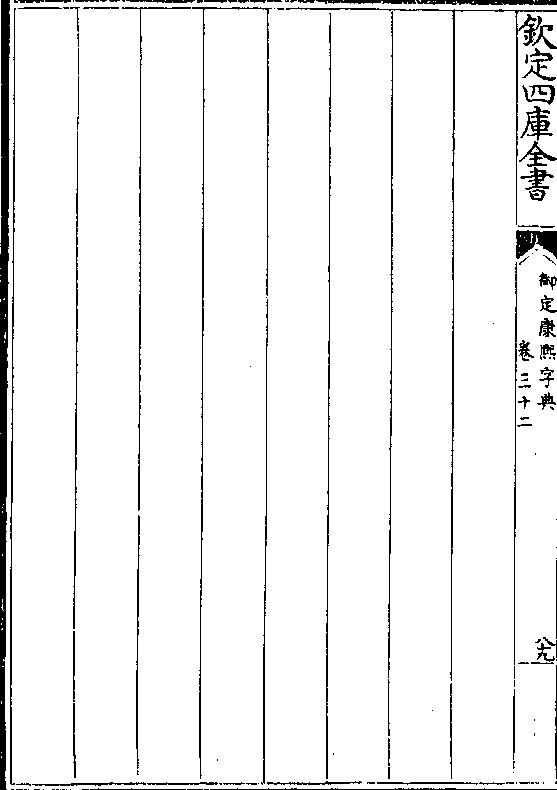 欽定四庫全書
御定康熙字典
卷三十二
八十九